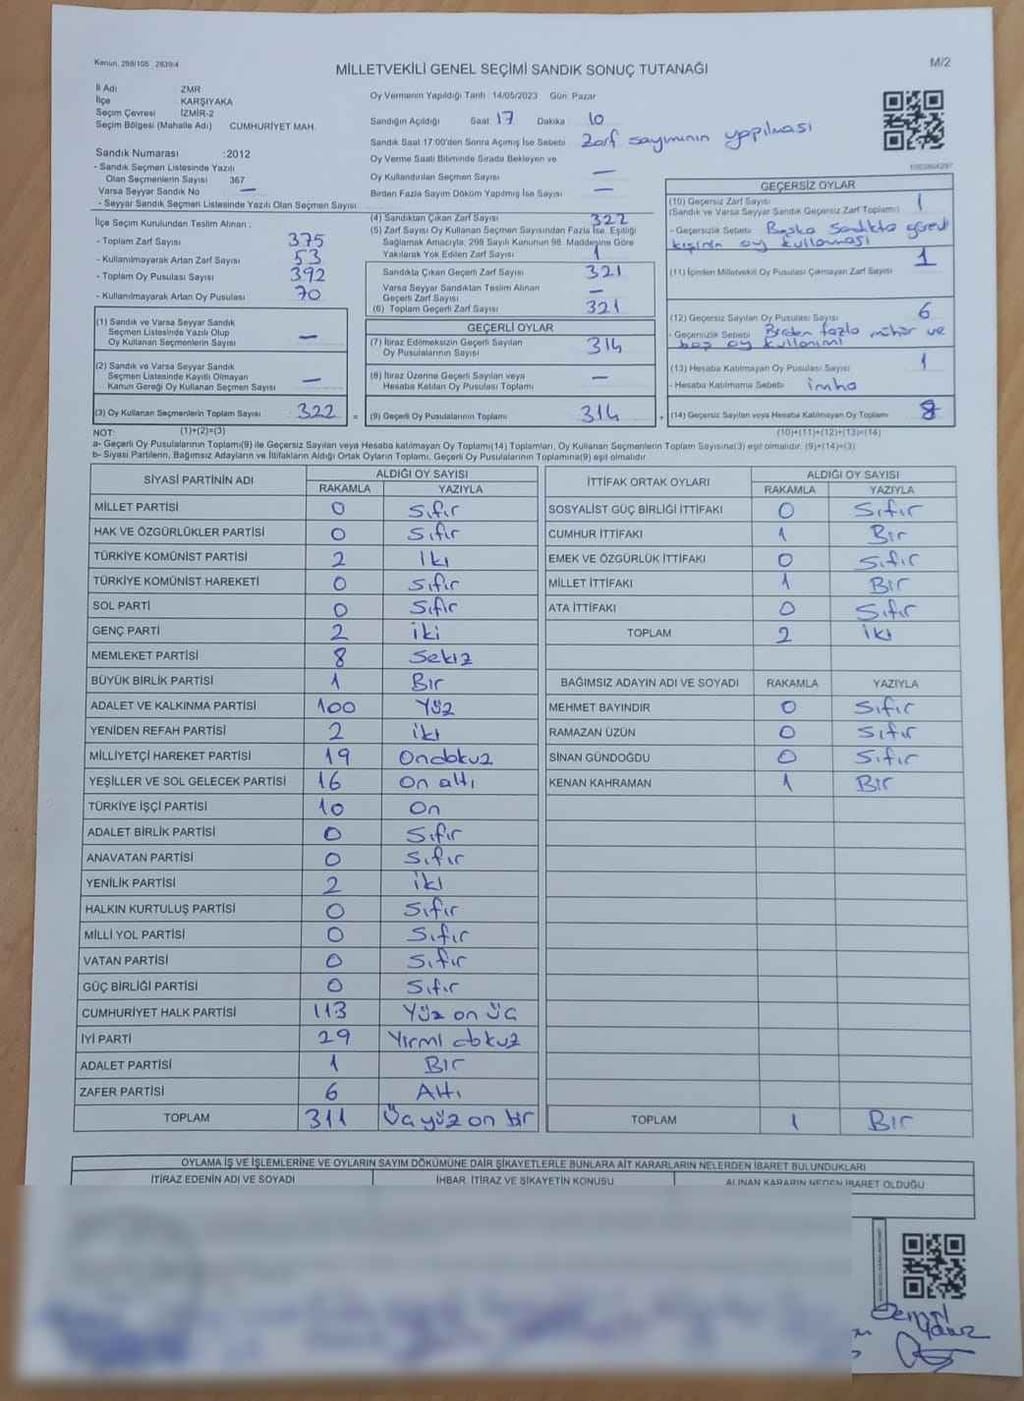 Kanun. 298/105 2839/4
MİLLETVEKİLİ GENEL SEÇİMİ SANDIK SONUÇ TUTANAĞI
M/2
İl Adı ZMR
İlçe KARŞIYAKA
Seçim Çevresi İZMİR-2
Seçim Bölgesi (Mahalle Adı) CUMHURİYET MAH.
Sandık Numarası :2012
- Sandık Seçmen Listesinde Yazılı
Olan Seçmenlerin Sayısı 367
Varsa Seyyar Sandık No —
- Seyyar Sandık Seçmen Listesinde Yazılı Olan Seçmen Sayısı
Oy Vermenin Yapıldığı Tarih 14/05/2023 Gün Pazar
Sandığın Açıldığı Saat 17 Dakika 10
Sandık Saat 17:00'den Sonra Açılmış İse Sebebi Zarf sayımının yapılması
Oy Verme Saati Bitiminde Sırada Bekleyen ve
Oy Kullandırılan Seçmen Sayısı —
Birden Fazla Sayım Döküm Yapılmış İse Sayısı —
İlçe Seçim Kurulundan Teslim Alınan :
- Toplam Zarf Sayısı 375
- Kullanılmayarak Artan Zarf Sayısı 53
- Toplam Oy Pusulası Sayısı 392
- Kullanılmayarak Artan Oy Pusulası 70
(1) Sandık ve Varsa Seyyar Sandık
Seçmen Listesinde Yazılı Olup
Oy Kullanan Seçmenlerin Sayısı —
(2) Sandık ve Varsa Seyyar Sandık
Seçmen Listesinde Kayıtlı Olmayan
Kanun Gereği Oy Kullanan Seçmen Sayısı —
(3) Oy Kullanan Seçmenlerin Toplam Sayısı 322
(1)+(2)=(3)
(4) Sandıktan Çıkan Zarf Sayısı 322
(5) Zarf Sayısı Oy Kullanan Seçmen Sayısından Fazla İse, Eşitliği
Sağlamak Amacıyla, 298 Sayılı Kanunun 98. Maddesine Göre
Yakılarak Yok Edilen Zarf Sayısı 1
Sandıkta Çıkan Geçerli Zarf Sayısı 321
Varsa Seyyar Sandıktan Teslim Alınan
Geçerli Zarf Sayısı —
(6) Toplam Geçerli Zarf Sayısı 321
GEÇERLİ OYLAR
(7) İtiraz Edilmeksizin Geçerli Sayılan
Oy Pusulalarının Sayısı 314
(8) İtiraz Üzerine Geçerli Sayılan veya
Hesaba Katılan Oy Pusulası Toplamı —
= (9) Geçerli Oy Pusulalarının Toplamı 314 +
GEÇERSİZ OYLAR
(10) Geçersiz Zarf Sayısı 1
(Sandık ve Varsa Seyyar Sandık Geçersiz Zarf Toplamı)
- Geçersizlik Sebebi Başka sandıkta görevli
kişinin oy kullanması
(11) İçinden Milletvekili Oy Pusulası Çıkmayan Zarf Sayısı 1
(12) Geçersiz Sayılan Oy Pusulası Sayısı 6
- Geçersizlik Sebebi Birden fazla mühür ve
boş oy kullanımı
(13) Hesaba Katılmayan Oy Pusulası Sayısı 1
- Hesaba Katılmama Sebebi imha
(14) Geçersiz Sayılan veya Hesaba Katılmayan Oy Toplamı 8
(10)+(11)+(12)+(13)=(14)
NOT:
a- Geçerli Oy Pusulalarının Toplamı(9) ile Geçersiz Sayılan veya Hesaba katılmayan Oy Toplamı(14) Toplamları, Oy Kullanan Seçmenlerin Toplam Sayısına(3) eşit olmalıdır. (9)+(14)=(3)
b- Siyasi Partilerin, Bağımsız Adayların ve İttifakların Aldığı Ortak Oyların Toplamı, Geçerli Oy Pusulalarının Toplamına(9) eşit olmalıdır
SİYASİ PARTİNİN ADI ALDIĞI OY SAYISI
RAKAMLA YAZIYLA
MİLLET PARTİSİ 0 Sıfır
HAK VE ÖZGÜRLÜKLER PARTİSİ 0 Sıfır
TÜRKİYE KOMÜNİST PARTİSİ 2 İki
TÜRKİYE KOMÜNİST HAREKETİ 0 Sıfır
SOL PARTİ 0 Sıfır
GENÇ PARTİ 2 iki
MEMLEKET PARTİSİ 8 Sekiz
BÜYÜK BİRLİK PARTİSİ 1 Bir
ADALET VE KALKINMA PARTİSİ 100 Yüz
YENİDEN REFAH PARTİSİ 2 iki
MİLLİYETÇİ HAREKET PARTİSİ 19 Ondokuz
YEŞİLLER VE SOL GELECEK PARTİSİ 16 On altı
TÜRKİYE İŞÇİ PARTİSİ 10 On
ADALET BİRLİK PARTİSİ 0 Sıfır
ANAVATAN PARTİSİ 0 Sıfır
YENİLİK PARTİSİ 2 iki
HALKIN KURTULUŞ PARTİSİ 0 Sıfır
MİLLİ YOL PARTİSİ 0 Sıfır
VATAN PARTİSİ 0 Sıfır
GÜÇ BİRLİĞİ PARTİSİ 0 Sıfır
CUMHURİYET HALK PARTİSİ 113 Yüz on üç
İYİ PARTİ 29 Yirmi dokuz
ADALET PARTİSİ 1 Bir
ZAFER PARTİSİ 6 Altı
TOPLAM 311 Üçyüz on bir
İTTİFAK ORTAK OYLARI ALDIĞI OY SAYISI
RAKAMLA YAZIYLA
SOSYALİST GÜÇ BİRLİĞİ İTTİFAKI 0 Sıfır
CUMHUR İTTİFAKI 1 Bir
EMEK VE ÖZGÜRLÜK İTTİFAKI 0 Sıfır
MİLLET İTTİFAKI 1 Bir
ATA İTTİFAKI 0 Sıfır
TOPLAM 2 İki
BAĞIMSIZ ADAYIN ADI VE SOYADI RAKAMLA YAZIYLA
MEHMET BAYINDIR 0 Sıfır
RAMAZAN ÜZÜN 0 Sıfır
SİNAN GÜNDOĞDU 0 Sıfır
KENAN KAHRAMAN 1 Bir
TOPLAM 1 Bir
OYLAMA İŞ VE İŞLEMLERİNE VE OYLARIN SAYIM DÖKÜMÜNE DAİR ŞİKAYETLERLE BUNLARA AİT KARARLARIN NELERDEN İBARET BULUNDUKLARI
İTİRAZ EDENİN ADI VE SOYADI İHBAR, İTİRAZ VE ŞİKAYETİN KONUSU ALINAN KARARIN NEDEN İBARET OLDUĞU